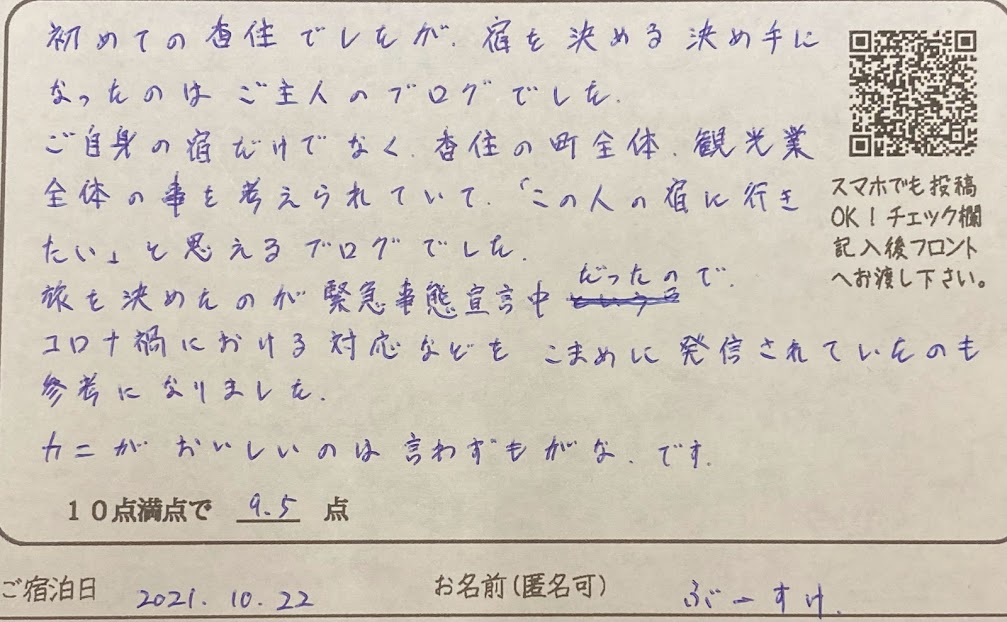 初めての香住でしたが、宿を決める決め手に
なったのはご主人のブログでした。
ご自身の宿だけでなく、香住の町全体、観光業
全体の事を考えられていて、「この人の宿に行き
たい」と思えるブログでした。
旅を決めたのが緊急事態宣言中だったので、
コロナ禍における対応などをこまめに発信されていたのも
参考になりました。
カニがおいしいのは言わずもがな、です。
10点満点で 9.5 点
スマホでも投稿
OK!チェック欄
記入後フロント
へお渡し下さい。
ご宿泊日 2021.10.22 お名前(匿名可) ぶーすけ.